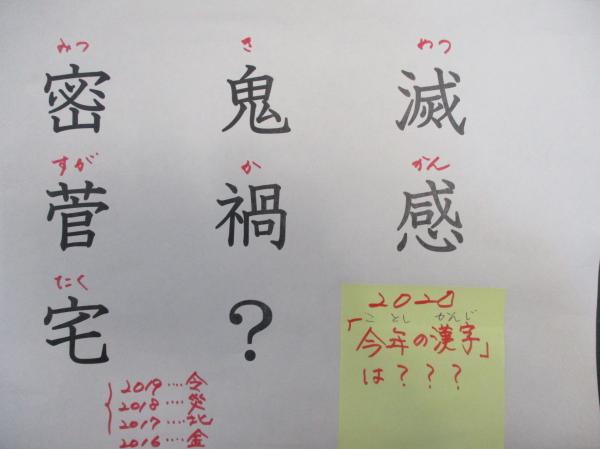 みつ き めつ
密 鬼 滅
すが か かん
菅 禍 感
たく
宅 ?
2020
ことし かんじ
「今年の漢字」
は???
2019‥‥令
2018‥‥災
2017‥‥北
2016‥‥金